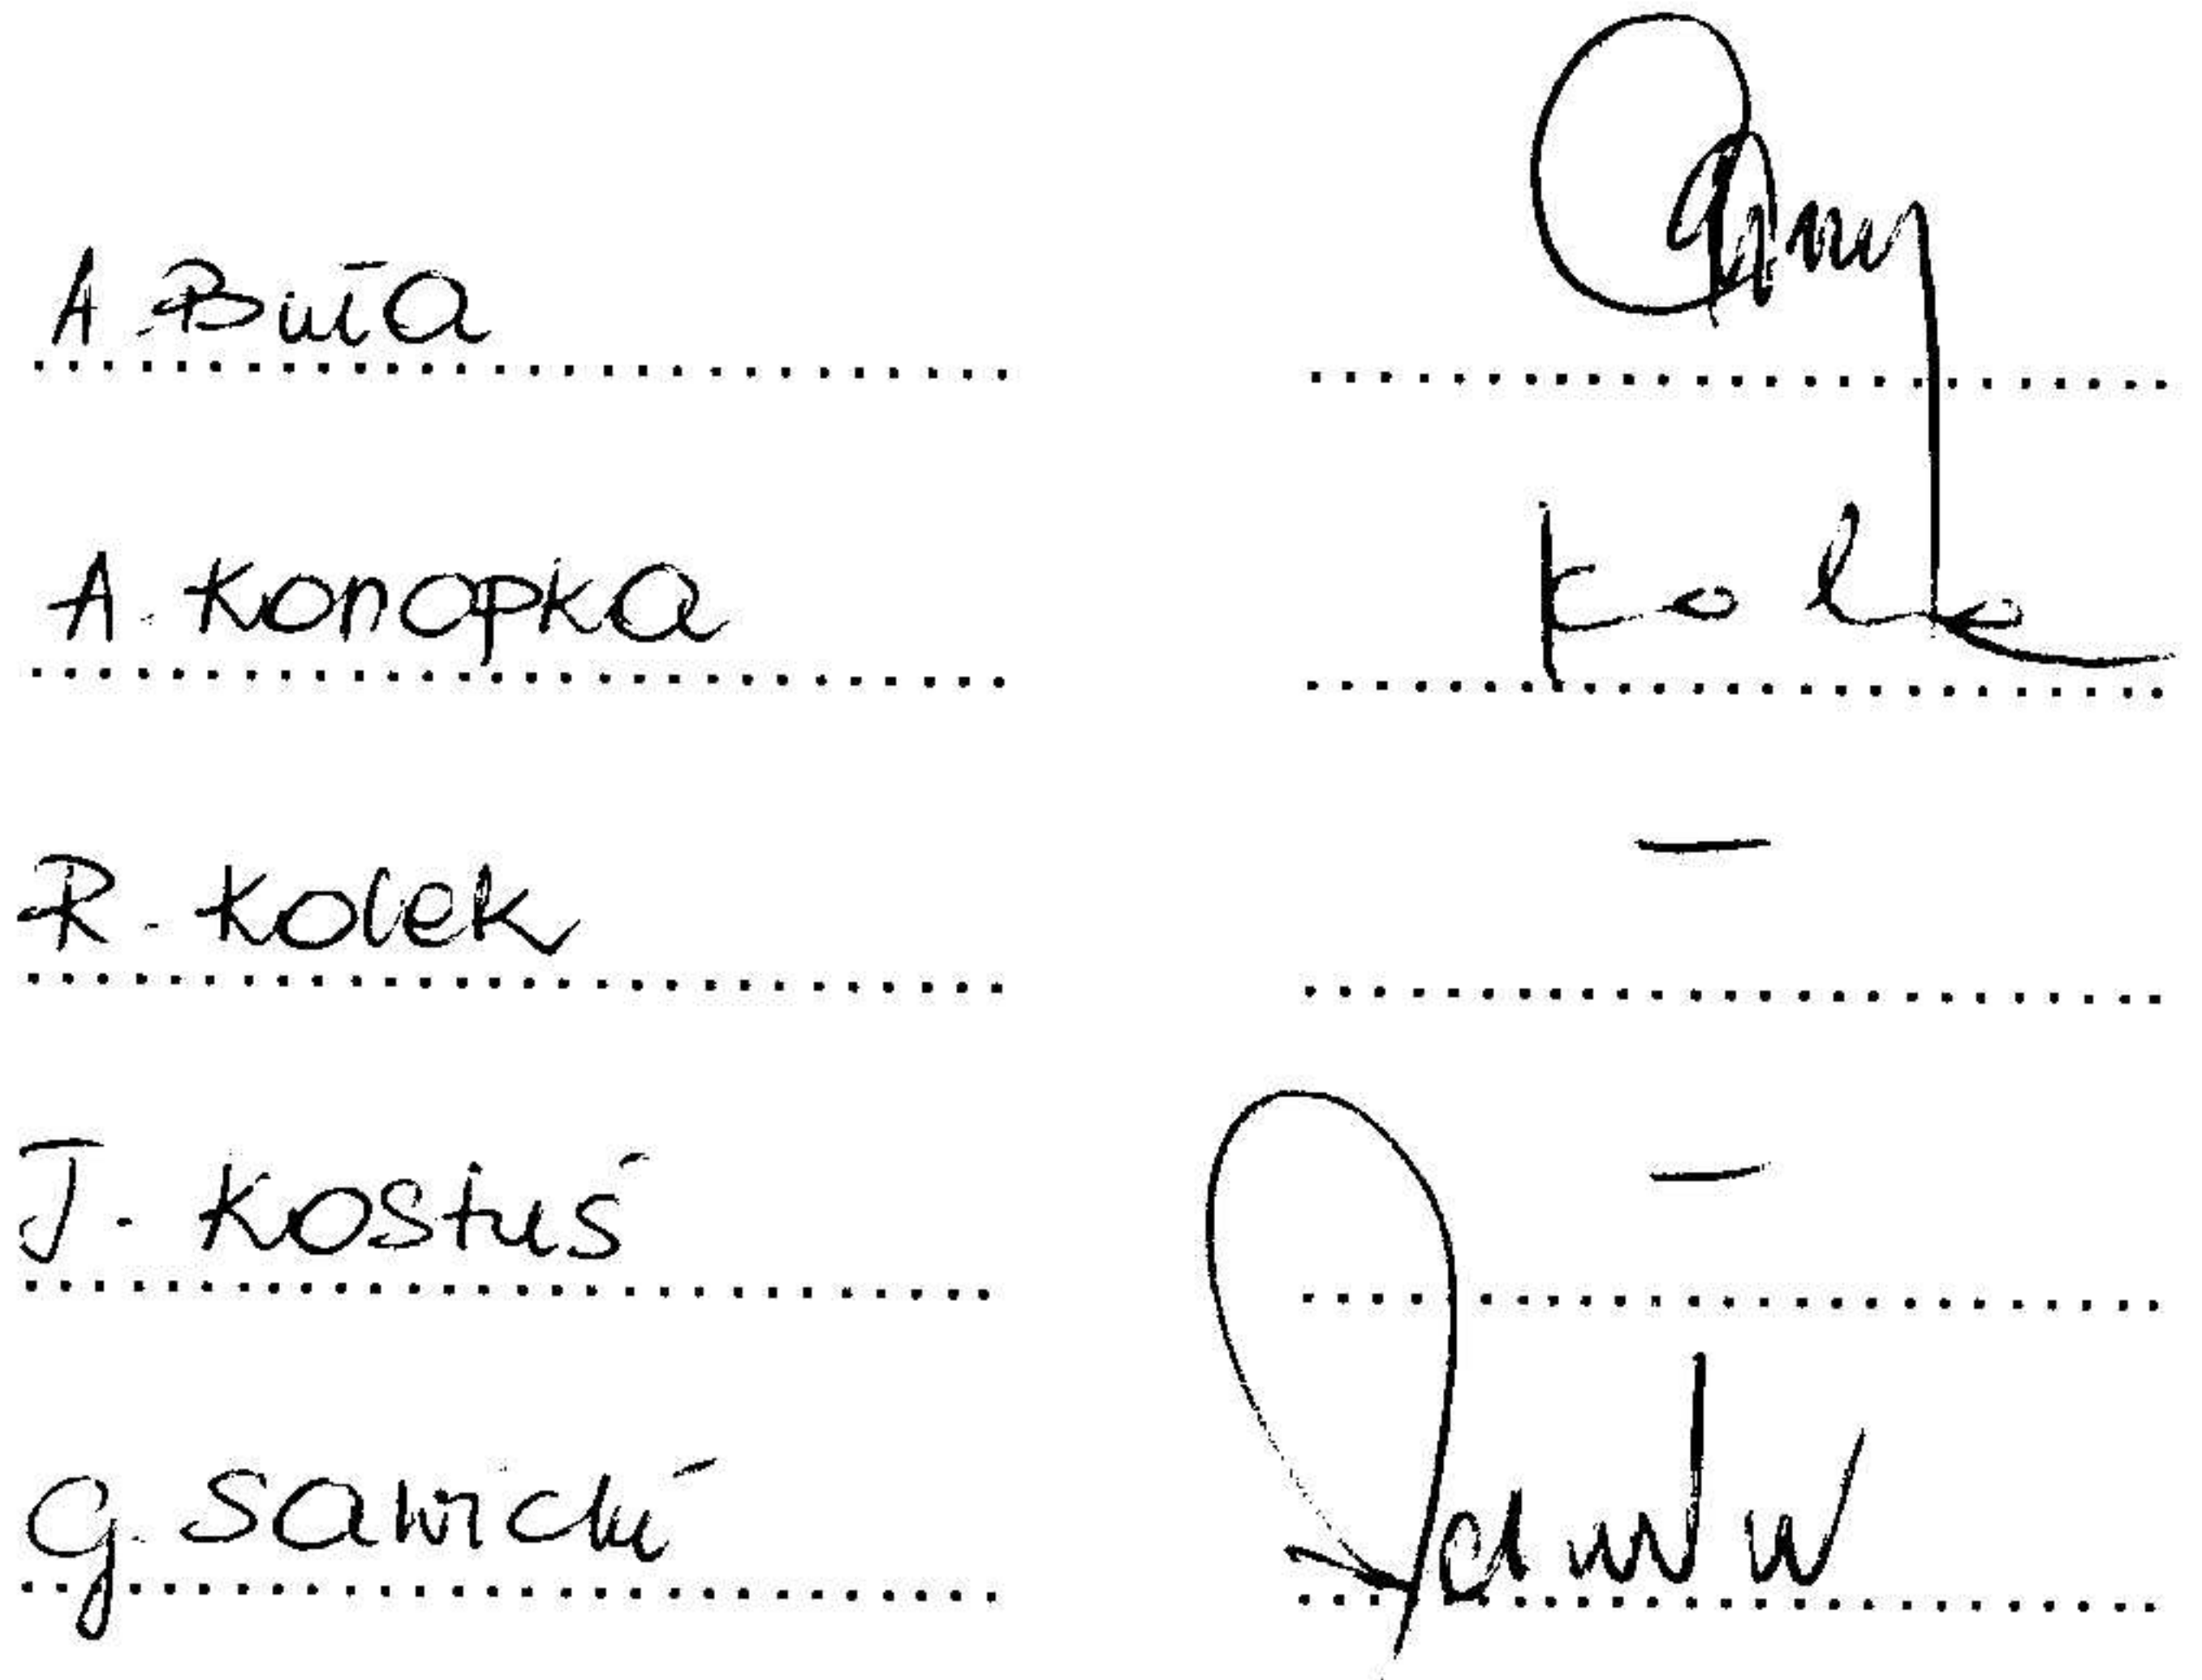 A. Buła
A. Konopka
R. Kolek –
J. Kostuś –
G. Sawicki